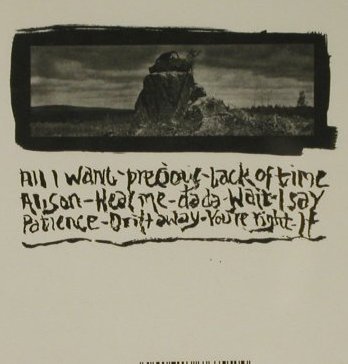 All I Want-precious-Lack of time
Alison-Hear me-da da-Wait-I say
Patience-Drift away-You're right-If